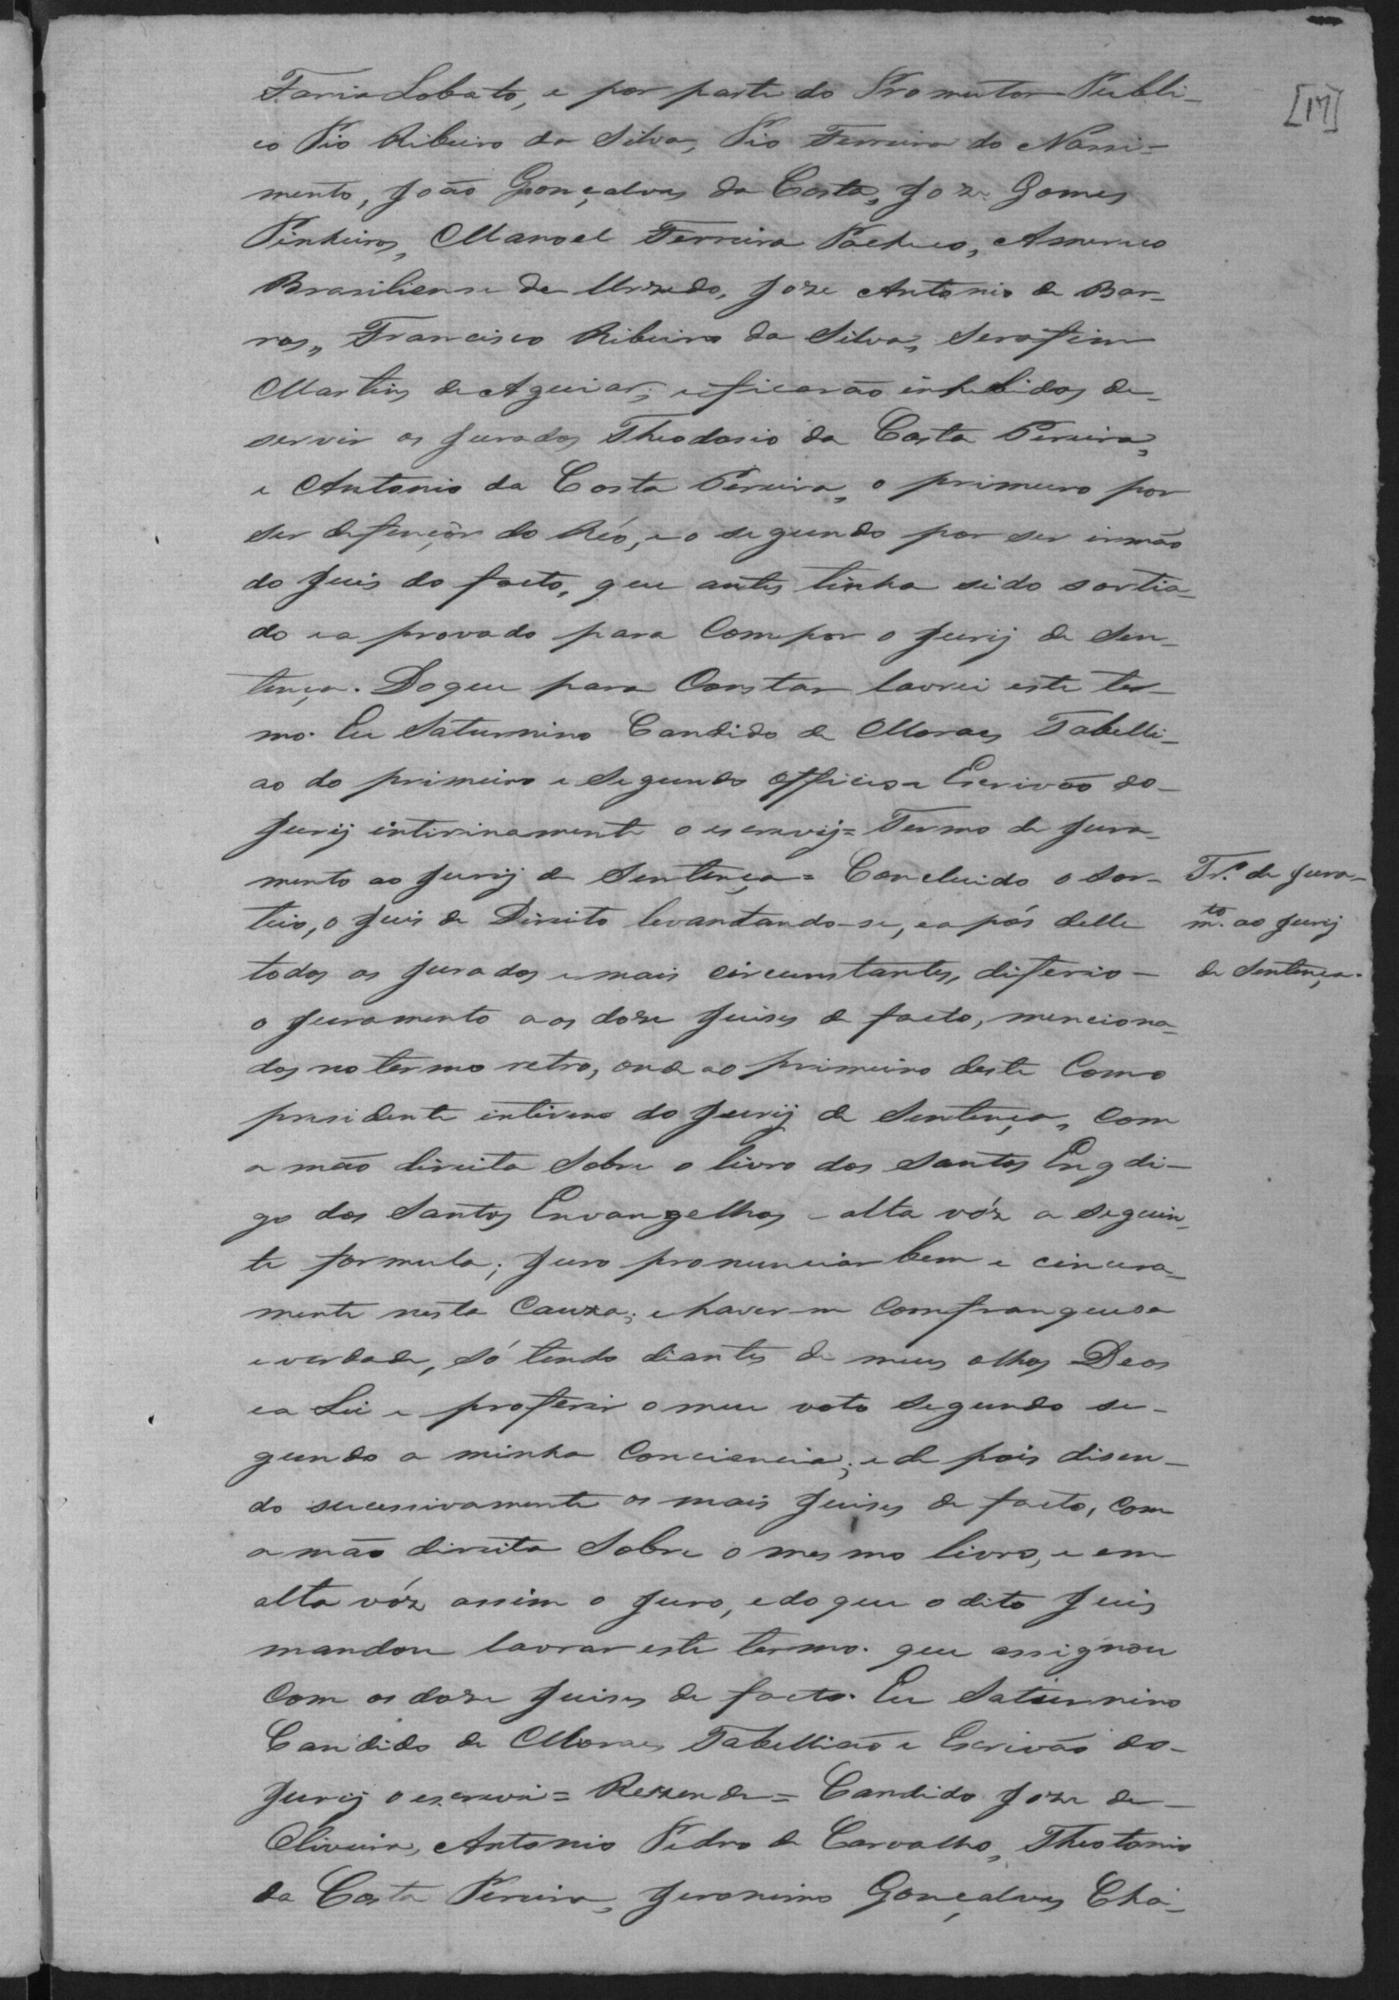 [17]
Faria Lobato, e por parte do Promutor Publi-
co Pio Ribeiro da Silva, Pio Ferreira do Nassi-
mento, João Gonçalves da Costa, Joze Gomes
Pinheiro, Manoel Ferreira Pacheco, Americo
Brasiliense de Azevedo, Joze Antonio de Bar-
ros, Francisco Ribeiro da Silva, Serafim
Martins de Aguiar; e ficarão inhebidos de
servir os Jurados Theodosio da Costa Pereira,
e Antonio da Costa Pereira, o primeiro por
ser defençôr do Réo, e o segundo por ser irmão
do Juis do facto, que antes tinha sido sortia-
do e a provado para Compor o Jurij de Sen-
tença. Do que para Constar lavrei este ter-
mo. Eu Saturnino Candido de Moraes Tabelli-
ao do primeiro e Segundo Officio e Escrivão do
Jurij intirinamente o escrevij= Termo de Jura-
mento ao Jurij de Sentença= Concluido o Sor-
teio, o Juis de Direito levantando-se, e a pós delle
todos os Jurados e mais circunstantes, diferio
o Juramento a os doze Juises de facto, menciona-
dos no termo retro, onde ao primeiro deste Como
prisidente intirino do Jurij de Sentença, Com
a mão direita Sobre o livro dos Santos Eng di-
go dos Santos Envangelhos alta vóz a seguin-
te formula; Juro pronunciar bem e cincera-
mente nesta Cauza; e haver-m Com franquesa
e verdade, só tendo diantes de meus olhos Deos
e a Lei e proferir o meu voto segundo se-
gundo a minha Conciencia; e de pois disen-
do sucessivamente os mais Juises de facto, Com
a mão direita Sobre o mesmo livro, e em
alta vóz assim o Juro, e do que o dito Juis
mandou lavrar este termo. que assignou
Com os doze Juises de facto. Eu Saturnino
Candido de Moraes Tabellião e Escrivão do
Jurij o escrevi= Rezende= Candido Joze de
Oliveira, Antonio Pedro de Carvalho, Theotonio
da Costa Pereira, Jeronimo Gonçalves Cha-
Tr.º de Jura-
m.to ao Jurij
de Sentença.